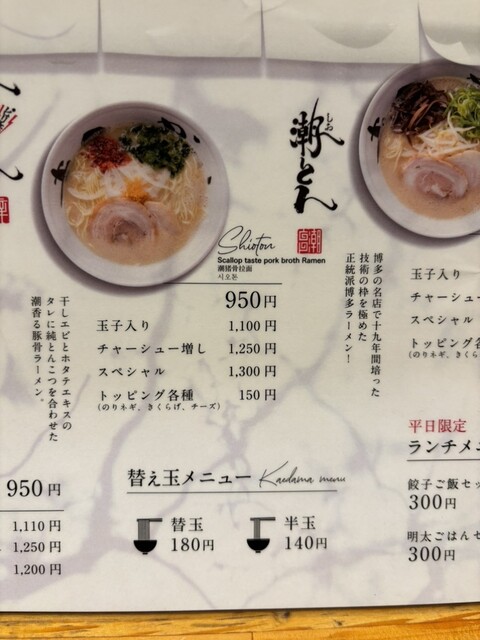 しお
潮とん
Shioton
Scallop taste pork broth Ramen
潮猪骨拉面
시오톤
950円
玉子入り 1,100円
チャーシュー増し 1,250円
スペシャル 1,300円
トッピング各種 150円
(のりネギ、きくらげ、チーズ)
干しエビとホタテエキスの
タレに純とんこつを合わせた
潮香る豚骨ラーメン。
博多の名店で十九年間培った
技術の枠を極めた
正統派博多ラーメン！
玉子入り
チャーシュー
スペシャル
トッピング各
(のりネギ、きくら
950円
1,110円
1,250円
1,200円
替え玉メニュー Kaedama menu
替玉
180円
半玉
140円
平日限定
ランチメニ
餃子ご飯セッ
300円
明太ごはんセ
300円